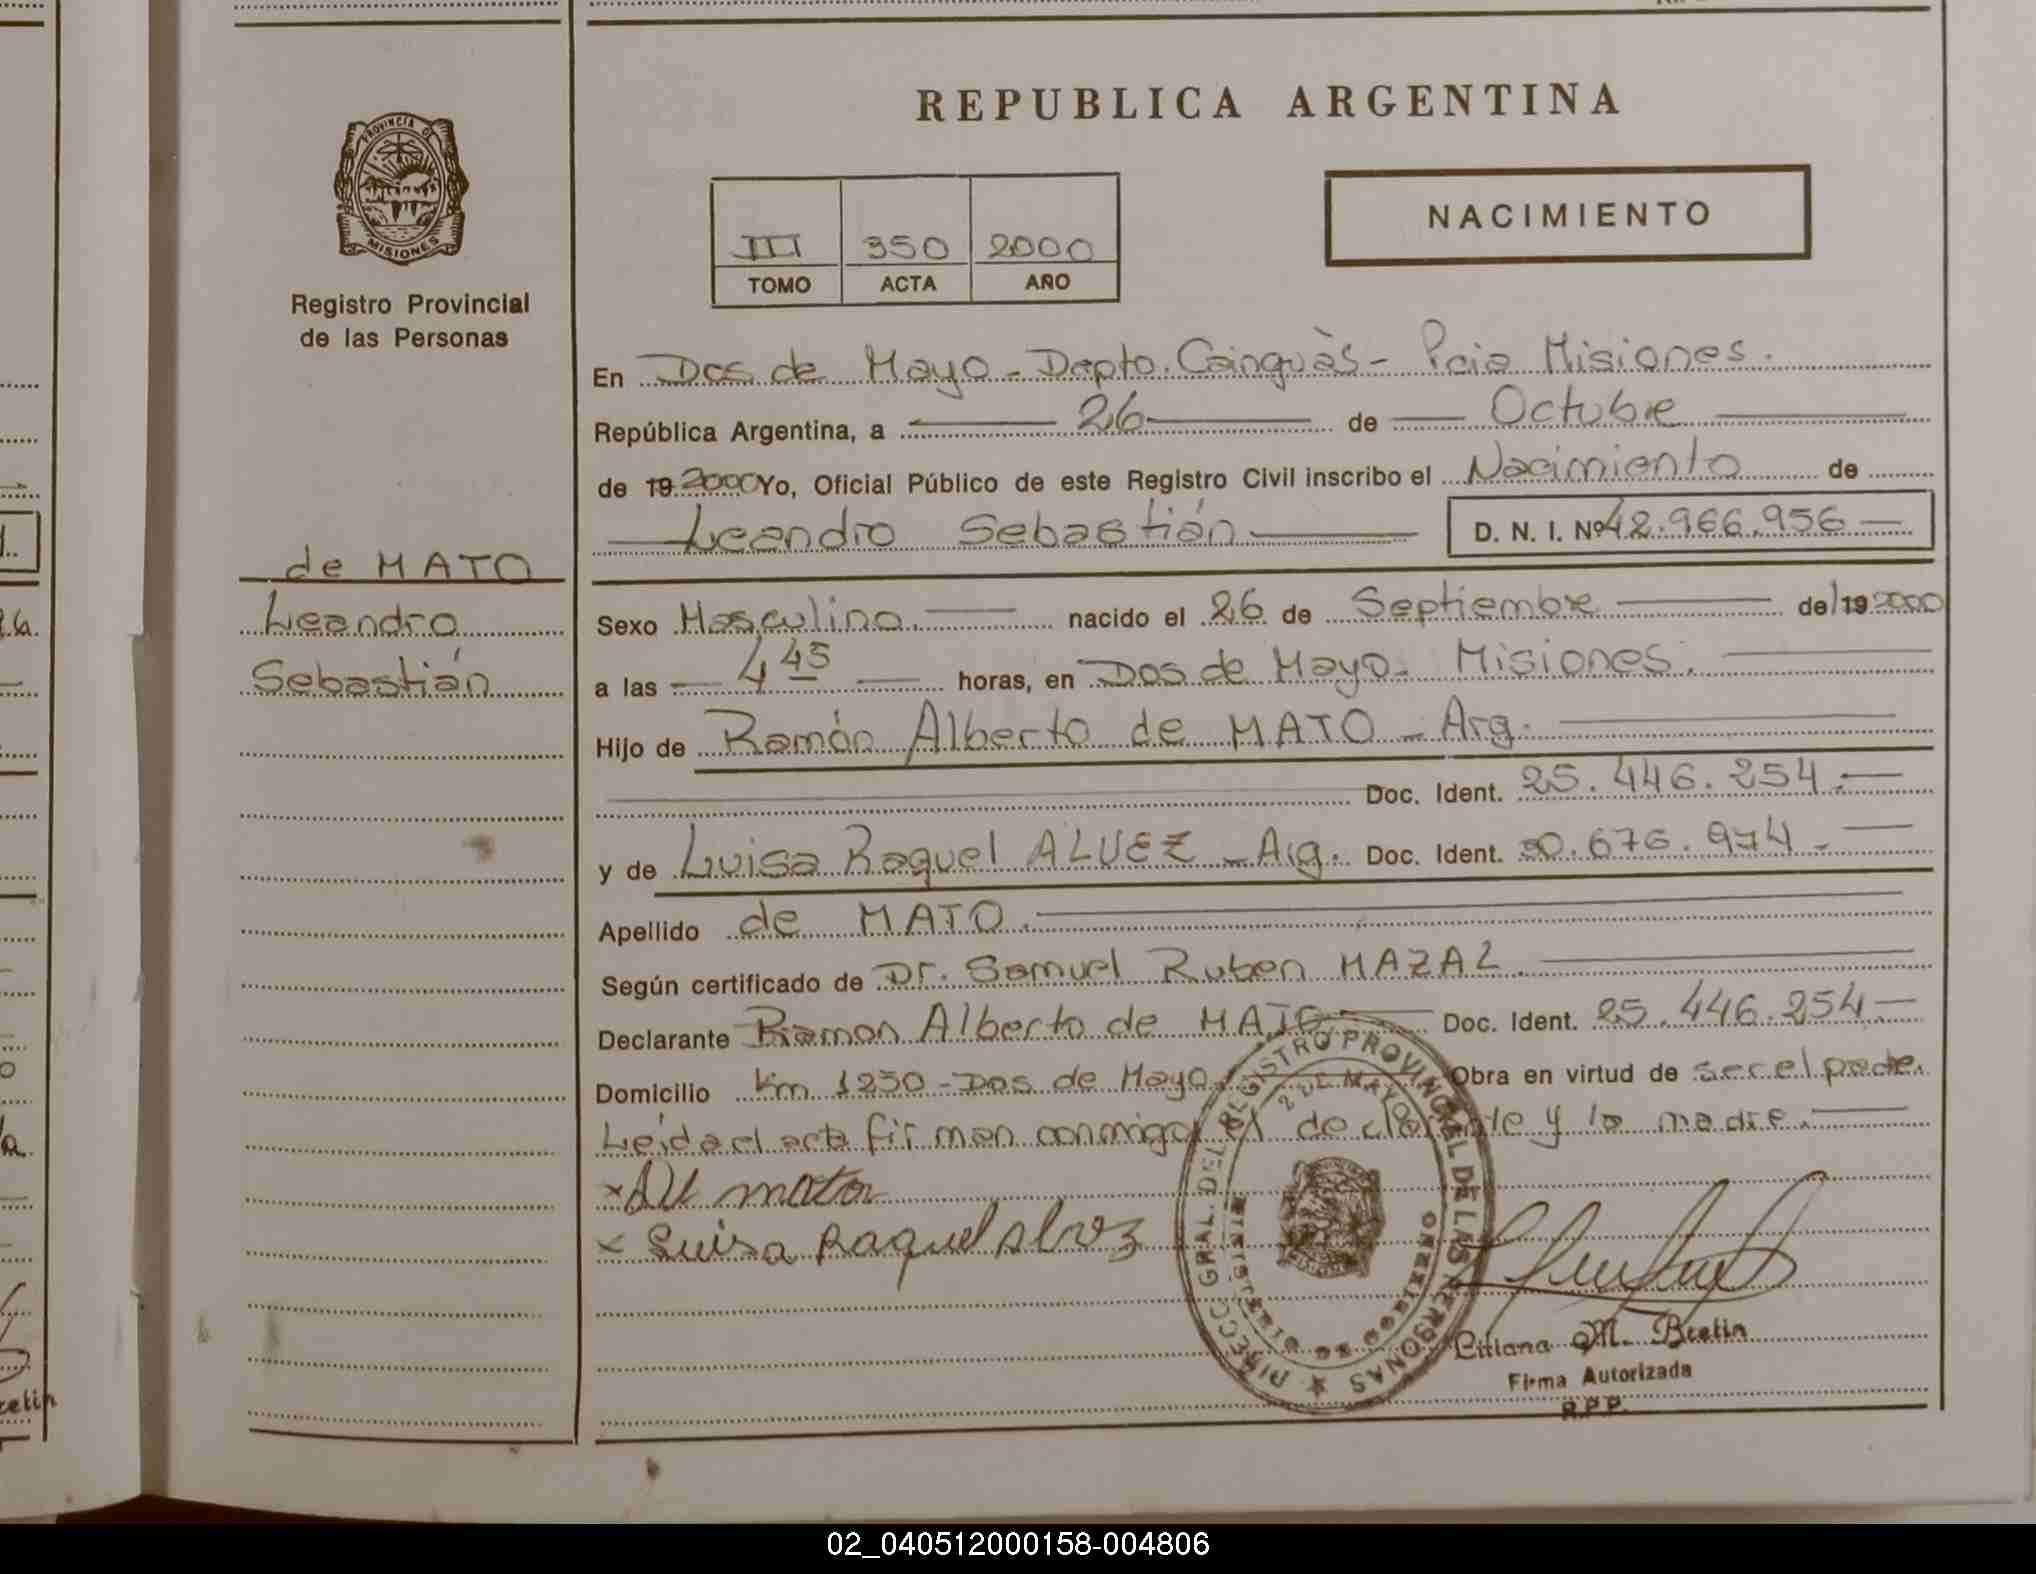 REPUBLICA ARGENTINA
PROVINCIA D
MISIONES
Registro Provincial
de las Personas
NACIMIENTO
III 350 2000
TOMO ACTA AÑO
En Dos de Mayo - Depto. Cainguàs - Pcia Misiones.
República Argentina, a 26 de Octubre
de 19 2000 Yo, Oficial Público de este Registro Civil inscribo el Nacimiento de
Leandro Sebastián D. N. I. Nº 42.966.956
de MATO
Leandro
Sebastián
Sexo Masculino. nacido el 26 de Septiembre de 19 2000
a las 4 45 horas, en Dos de Mayo - Misiones.
Hijo de Ramón Alberto de MATO - Arg.
Doc. Ident. 25.446.254.
y de Luisa Raquel ALVEZ - Arg. Doc. Ident. 30.676.974.
Apellido de MATO.
Según certificado de Dr. Samuel Ruben MAZAL.
Declarante Ramon Alberto de MATO Doc. Ident. 25.446.254
Domicilio Km 1250 - Dos de Mayo Obra en virtud de ser el padre.
Leída el acta firman conmigo el declarante y la madre.
x mator
x Luisa Raquel Alvez
DIRECC. GRAL. DEL REGISTRO PROVINCIAL DE LAS PERSONAS
2 DE MAYO
MINISTERIO DE GOBIERNO
Liliana M. Bretin
Firma Autorizada
R.P.P.
02_040512000158-004806